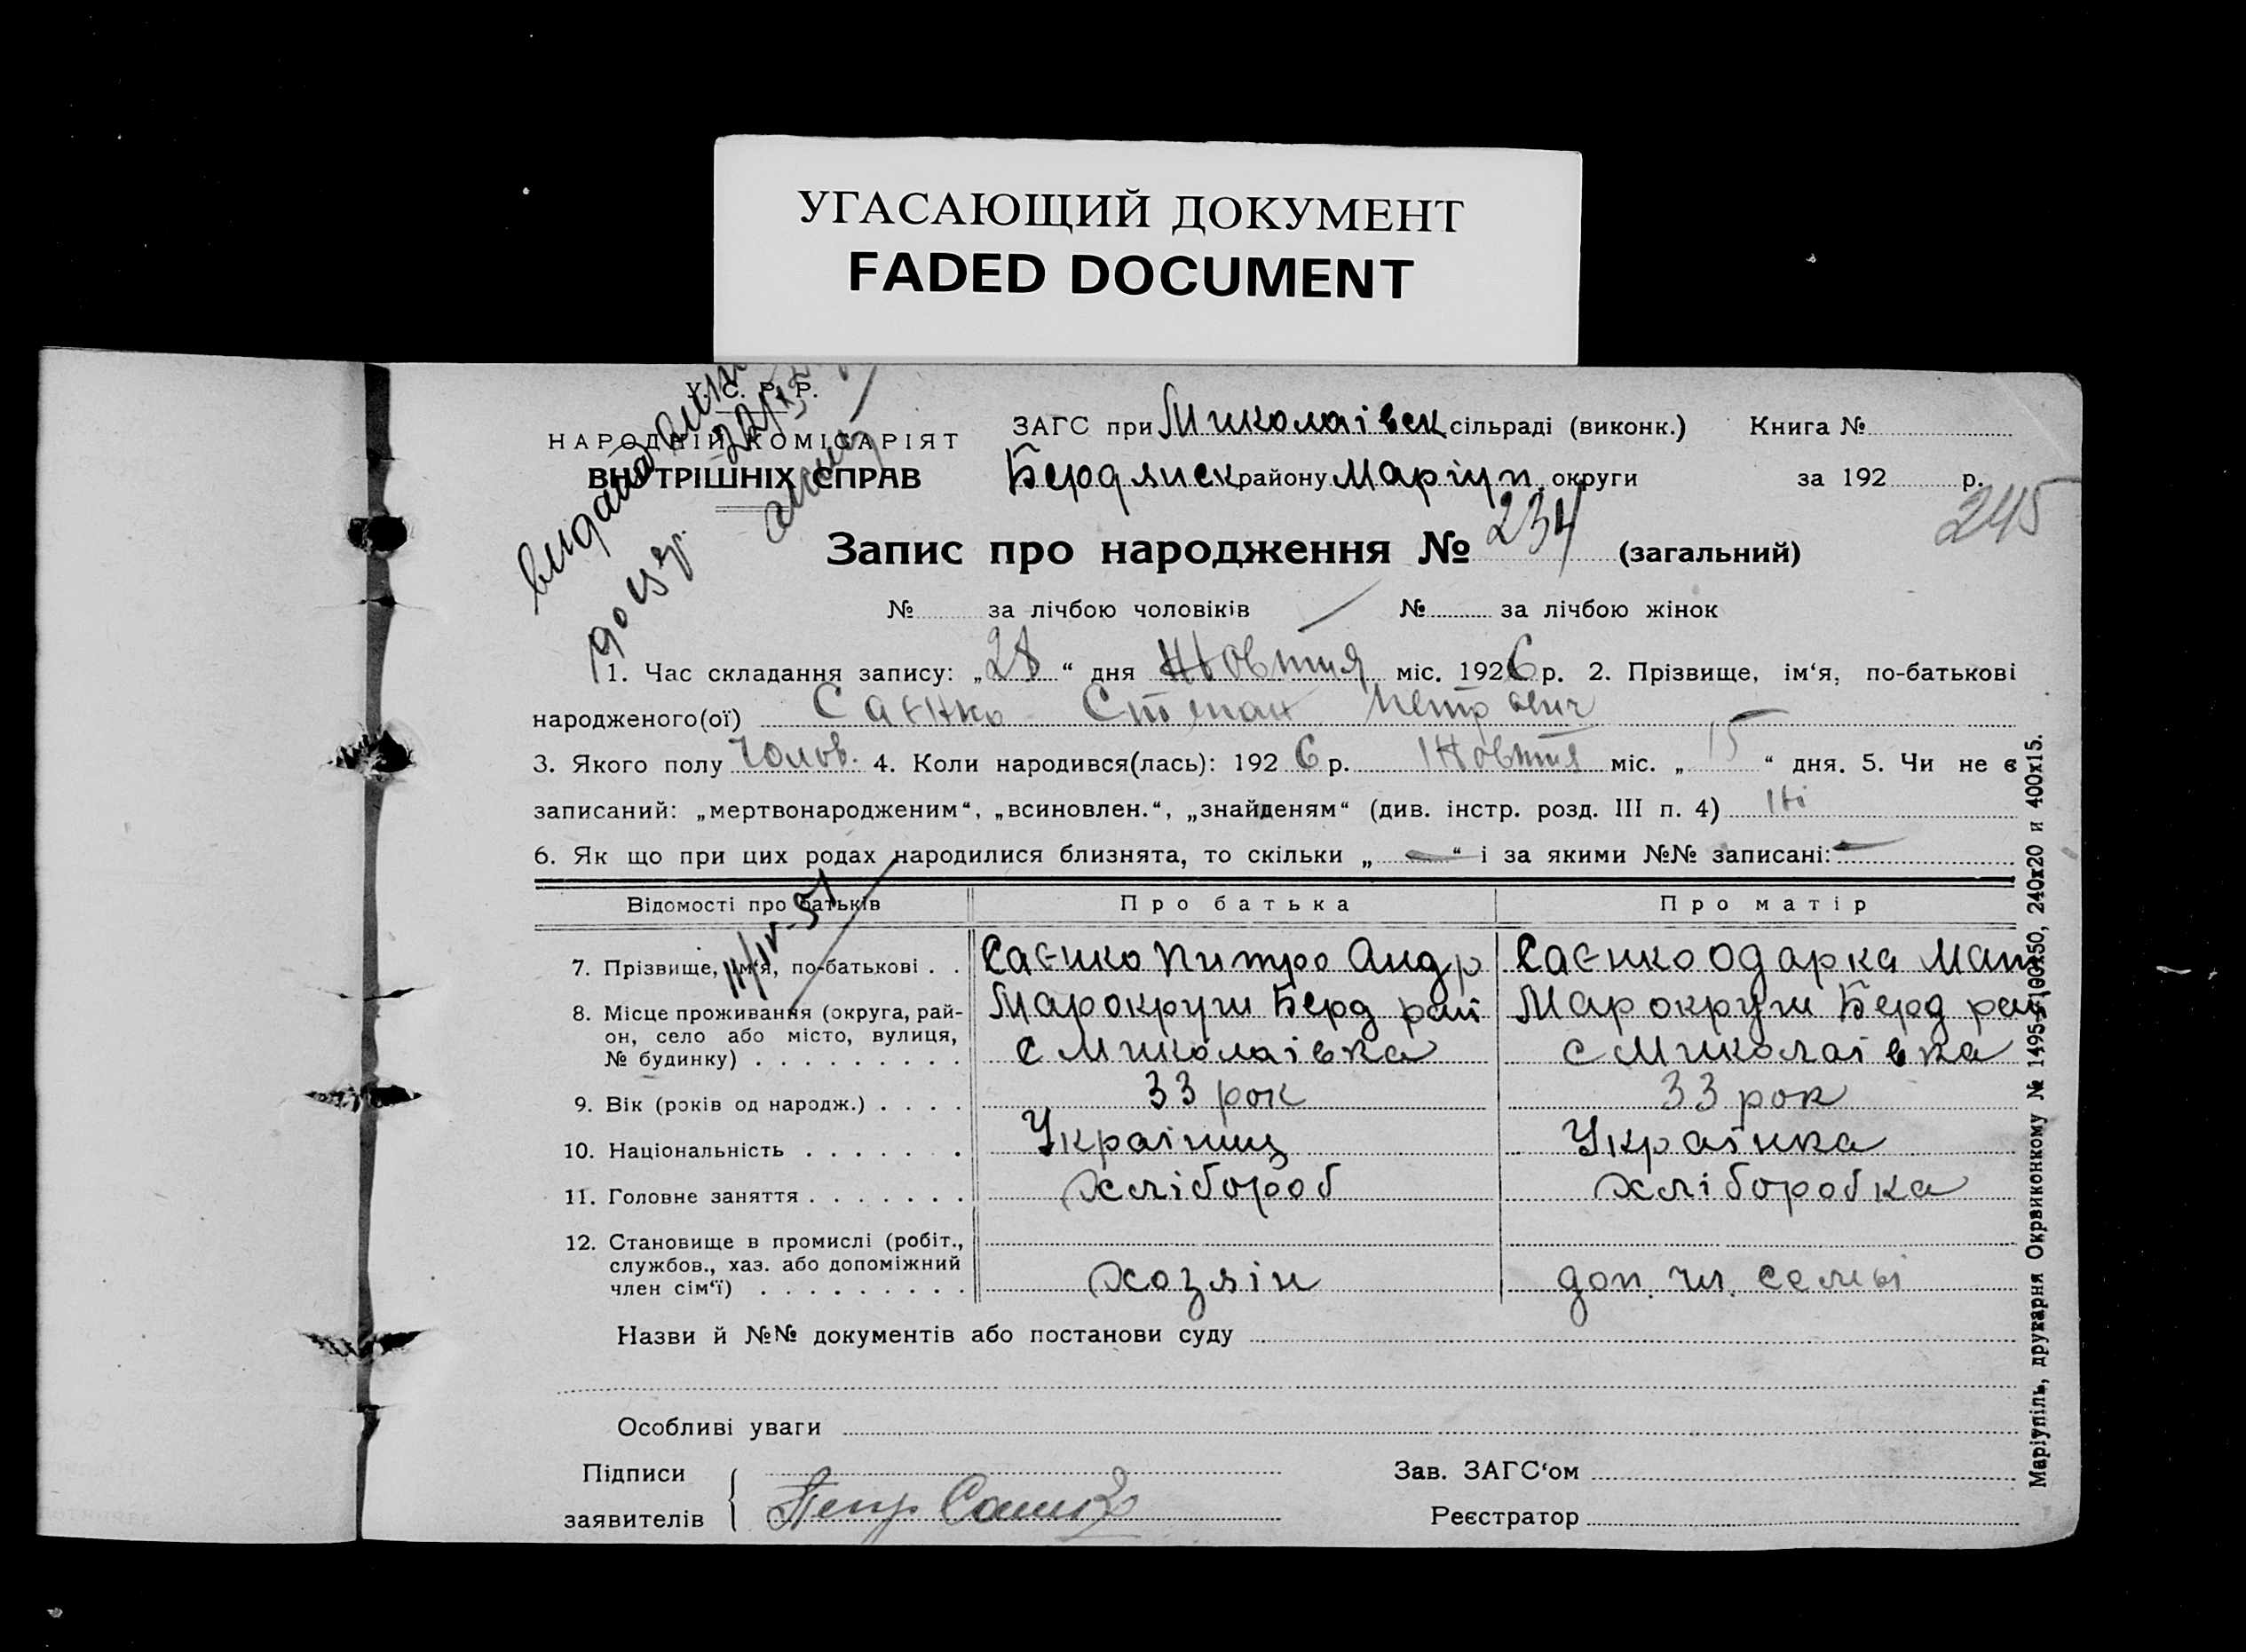 УГАСАЮЩИЙ ДОКУМЕНТ
FADED DOCUMENT
У. С. Р. Р.
НАРОДНІЙ КОМІСАРІЯТ
ВНУТРІШНІХ СПРАВ
ЗАГС при Миколаівск сільраді (виконк.) Книга №
Бердянск району Маріуп. округи за 192 р.
245
Запис про народження № 234 (загальний)
№ за лічбою чоловіків № за лічбою жінок
1. Час складання запису: „28“ дня Жовтня міс. 1926 р. 2. Прізвище, ім‘я, по-батькові
народженого(ої) Саєнко Степан Петрович
3. Якого полу Чолов. 4. Коли народився(лась): 1926 р. Жовтня міс. „15“ дня. 5. Чи не є
записаний: „мертвонародженим“, „всиновлен.“, „знайденям“ (див. інстр. розд. III п. 4) Ні
6. Як що при цих родах народилися близнята, то скільки „—“ і за якими №№ записані: —
Відомості про батьків Про батька Про матір
11/IV-51
7. Прізвище, ім‘я, по-батькові . . Саєнко Питро Андр Саєнко Одарка Мат
8. Місце проживання (округа, рай- Марокруги Берд рай Марокруги Берд рай
он, село або місто, вулиця,
№ будинку) . . . . . . . . . с Миколаівка с Миколаівка
9. Вік (років од народж.) . . . . 33 рок 33 рок
10. Національність . . . . . . . Украіниц Українка
11. Головне заняття . . . . . . . хлібороб хліборобка
12. Становище в промислі (робіт.,
службов., хаз. або допоміжний
член сім‘ї) . . . . . . . . . хозяін доп. чл. семьі
Назви й №№ документів або постанови суду
Особливі уваги
Підписи Зав. ЗАГС‘ом
заявителів Петр Саенко Реєстратор
Маріупіль, друкарня Окрвиконкому № 1495-5100х50, 240х20 и 400х15.